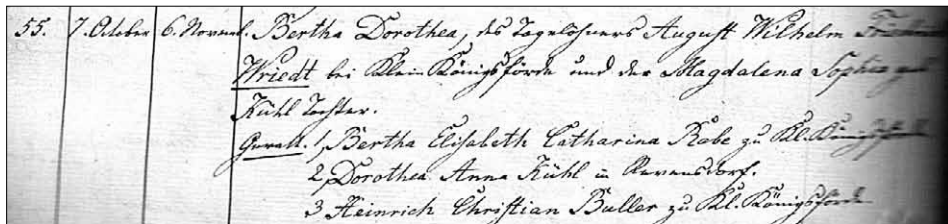 55. 7. October 6. Novemb. Bertha Dorothea, des Tagelöhners August Wilhelm
Wriedt bei Klein Königsförde und der Magdalena Sophia geb
Kühl Tochter.
Gevatt. 1, Bertha Elisabeth Catharina Rabe zu Kl. Königsförde
2, Dorothea Anna Kühl in Revensdorf.
3 Heinrich Christian Buller zu Kl. Königsförde